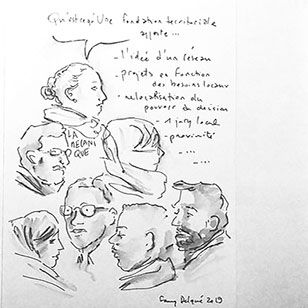 Qu'est ce qu'Une fondation territoriale
apporte...
- l'idée d'un réseau
- projets en fonction
des besoins locaux
- relocalisation du
pouvoir de décision
- 1 jury local
- proximité
- ....
- ...
LA
MECANI
QUE
2019